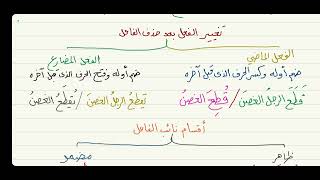 تغيير الفعل بعد حذف الفاعل
الفعل الماضي
الفعل المضارع
ضم أوله وكسر الحرف الذى قبل آخره
ضم أوله وفتح الحرف الذى قبل آخره
قَطَعَ الرجلُ الغصنَ / قُطِعَ الغصنُ
يَقطَعُ الرجلُ الغصنَ / يُقطَعُ الغصنُ
أقسام نائب الفاعل
ظاهر
مضمر